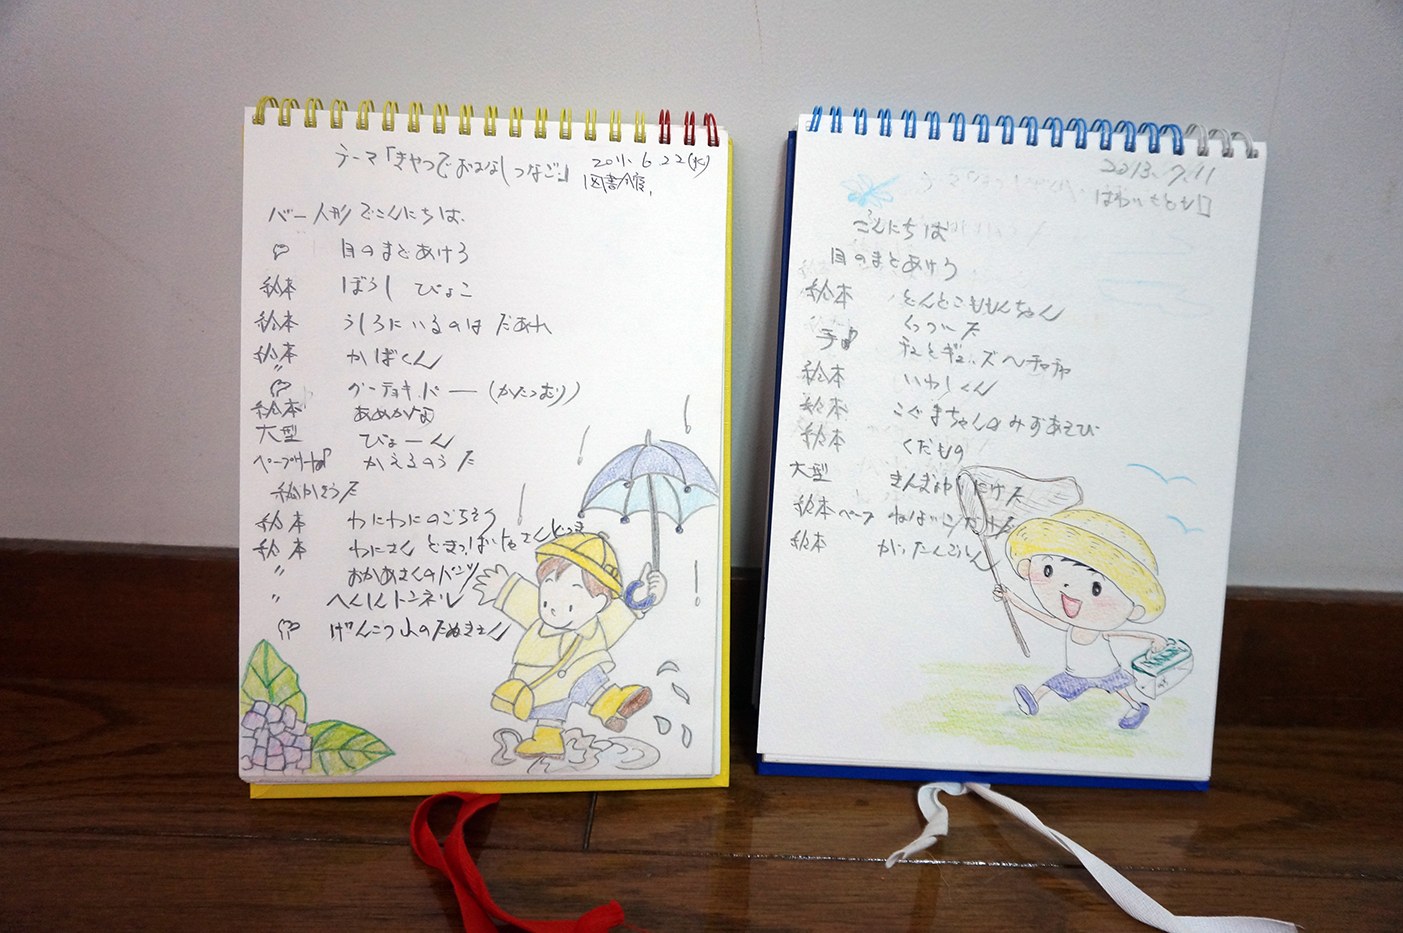 テーマ「きゃっておはなしつなご」
2011. 6. 22(水)
図書館、
バー人形 でこんにちは、
目のまどあけろ
絵本 ぼうし ぴょこ
絵本 うしろにいるのは だあれ
絵本 かばくん
〃 グーチョキパー ― (かたつむり)
絵本 あめかな
大型 ぴょーん
ペープサート かえるのうた
絵かきうた
絵本 わにわにのごちそう
絵本 わにさん どきっ はいしゃさん どきっ
〃 おかあさんのパンツ
〃 へんしんトンネル
げんこつ山のたぬきさん
2013. 7. 11
こんにちは
目のまどあけろ
絵本 とんとこももんちゃん
手 くっついた
チェとギュッズヘチャチャ
絵本 いわしくん
絵本 こぐまちゃんのみずあそび
絵本 くだもの
大型 きんぎょがにげた
絵本 ペープ ねばったけた
絵本 がったんごとん